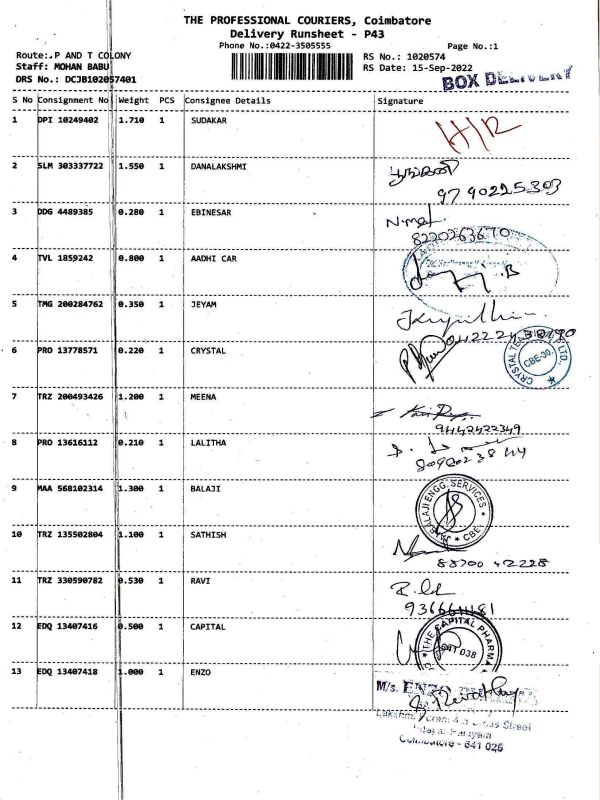 THE PROFESSIONAL COURIERS, Coimbatore
Delivery Runsheet - P43
Phone No.:0422-3505555
Page No.:1
Route:.P AND T COLONY
RS No.: 1020574
Staff: MOHAN BABU
RS Date: 15-Sep-2022
DRS No.: DCJB102057401
BOX DELIVERY
S No Consignment No Weight PCS Consignee Details Signature
1 DPI 10249402 1.710 1 SUDAKAR H/R
2 SLM 303337722 1.550 1 DANALAKSHMI
9790225303
3 DDG 4489385 0.280 1 EBINESAR
8220263670
4 TVL 1859242 0.800 1 AADHI CAR
5 TMG 200284762 0.350 1 JEYAM
6 PRO 13778571 0.220 1 CRYSTAL
CRYSTAL LTD. CBE-30.
7 TRZ 200493426 1.200 1 MEENA
9442422349
8 PRO 13616112 0.210 1 LALITHA
9 MAA 568102314 1.300 1 BALAJI
BALAJI ENGG. SERVICES CBE
10 TRZ 135502804 1.100 1 SATHISH
88700 42228
11 TRZ 330590782 0.530 1 RAVI
9366641181
12 EDQ 13407416 0.500 1 CAPITAL
THE CAPITAL PHARMA
13 EDQ 13407418 1.000 1 ENZO
M/s. ENZO
Cross Street
Coimbatore - 641 025